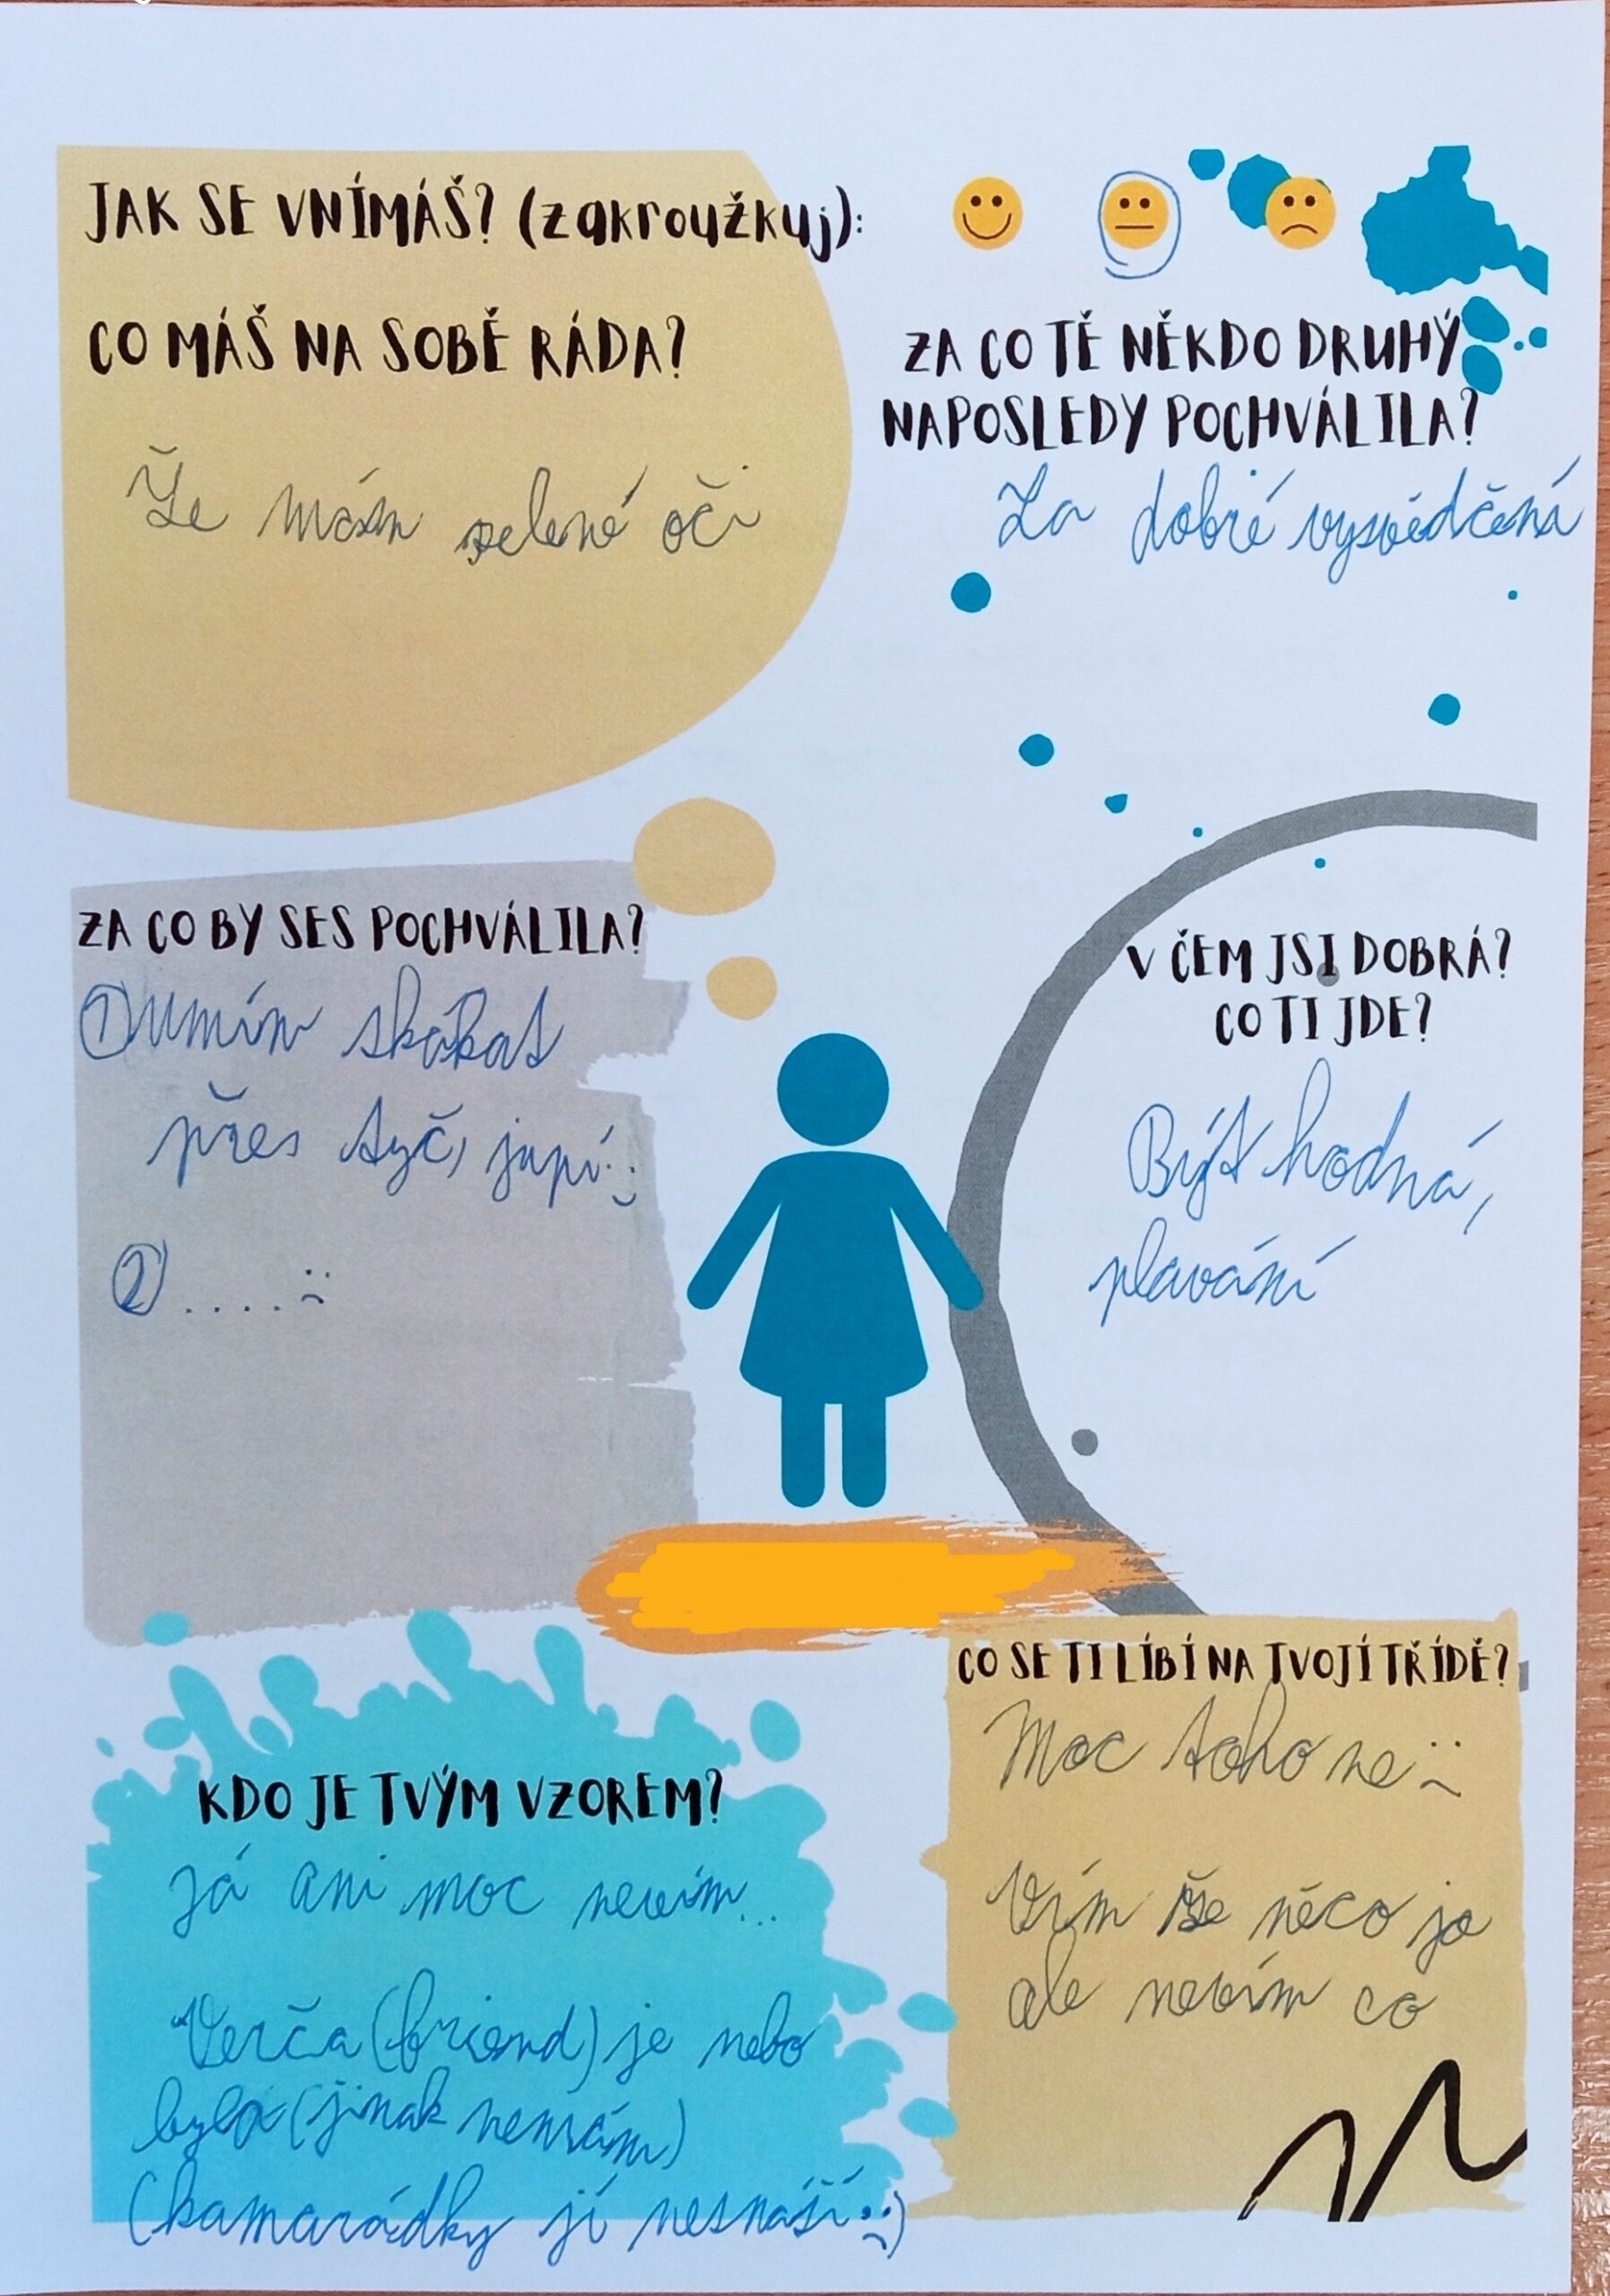 JAK SE VNÍMÁŠ? (zakroužkuj):
CO MÁŠ NA SOBĚ RÁDA?
Že mám zelené oči
ZA CO TĚ NĚKDO DRUHÝ
NAPOSLEDY POCHVÁLILA?
Za dobré vysvědčení
ZA CO BY SES POCHVÁLILA?
① Umím skákat
přes tyč, jupí :)
② .... :(
V ČEM JSI DOBRÁ?
CO TI JDE?
Být hodná,
plavání
KDO JE TVÝM VZOREM?
Já ani moc nevím...
Verča (friend) je nebo
byla (jinak nemám)
(kamarádky jí nesnáší :()
CO SE TI LÍBÍ NA TVOJÍ TŘÍDĚ?
Moc toho ne :(
Vím že něco jo
ale nevím co